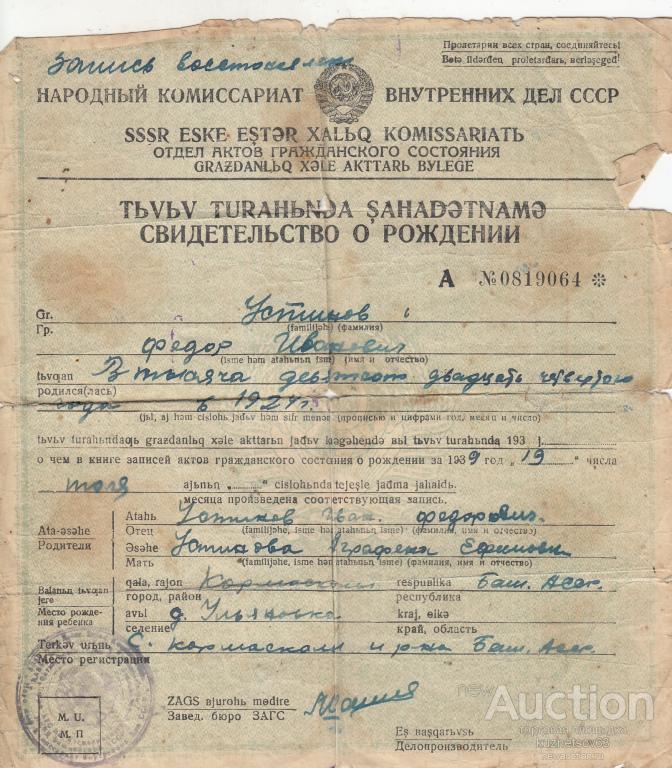 Запись восстановлена
Пролетарии всех стран, соединяйтесь!
Bөtə ildərden proletardarь, berləşeged!
НАРОДНЫЙ КОМИССАРИАТ ВНУТРЕННИХ ДЕЛ СССР
SSSR ESKE EŞTƏR XALЬQ KOMISSARIATЬ
ОТДЕЛ АКТОВ ГРАЖДАНСКОГО СОСТОЯНИЯ
GRAZDANLЬQ XƏLE AKTTARЬ BYLEGE
TЬVЬV TURAHЬNDA ŞAHADƏTNAMƏ
СВИДЕТЕЛЬСТВО О РОЖДЕНИИ
А №0819064 *
Gr. Устинов
Гр. (familijəhe) (фамилия)
Федор Иванович
(isme həm atahьnьꞑ isme) (имя и отчество)
tьvƣan В тысяча девятьсот двадцать четвертого
родился(лась)
года в 1924 г.
(jьl, aj həm cislohь jaδuv həm sifr menən) (прописью и цифрами год, месяц и число)
tьvьv turahьndaƣь grazdanlьq xəle akttarьn jaδuv kənəgəhendə вьl tьvьv turahьnda 193 j.
о чем в книге записей актов гражданского состояния о рождении за 1939 год „19" числа
июля ajьnьꞑ „ " cislohьnda tejeşle jaδma jahaldь.
месяца произведена соответствующая запись.
Ata-əsəhe
Родители
Atahь Устинов Иван Федорович
Отец (familijəhe, isme həm atahьnьꞑ isme) (фамилия, имя и отчество)
Əsəhe Устинова Аграфена Ефимовн
Мать (familijəhe, isme həm atahьnьꞑ isme) (фамилия, имя и отчество)
Balanьꞑ tьvƣan jere
Место рождения ребенка
qala, rajon Кармаскалы respuвlika Баш. Асср.
город, район республика
avьl д. Ульяновка kraj, өlkə
селение край, область
Terkəv urьnь С. Кармаскалы и р-на Баш. Асср.
Место регистрации
ZAGS вjurohь mədire
Завед. бюро ЗАГС
M. U.
М. П
Eş вaşqarьvsь
Делопроизводитель
newAuction
торговая площадка
kuzhetsov63
newauction.ru